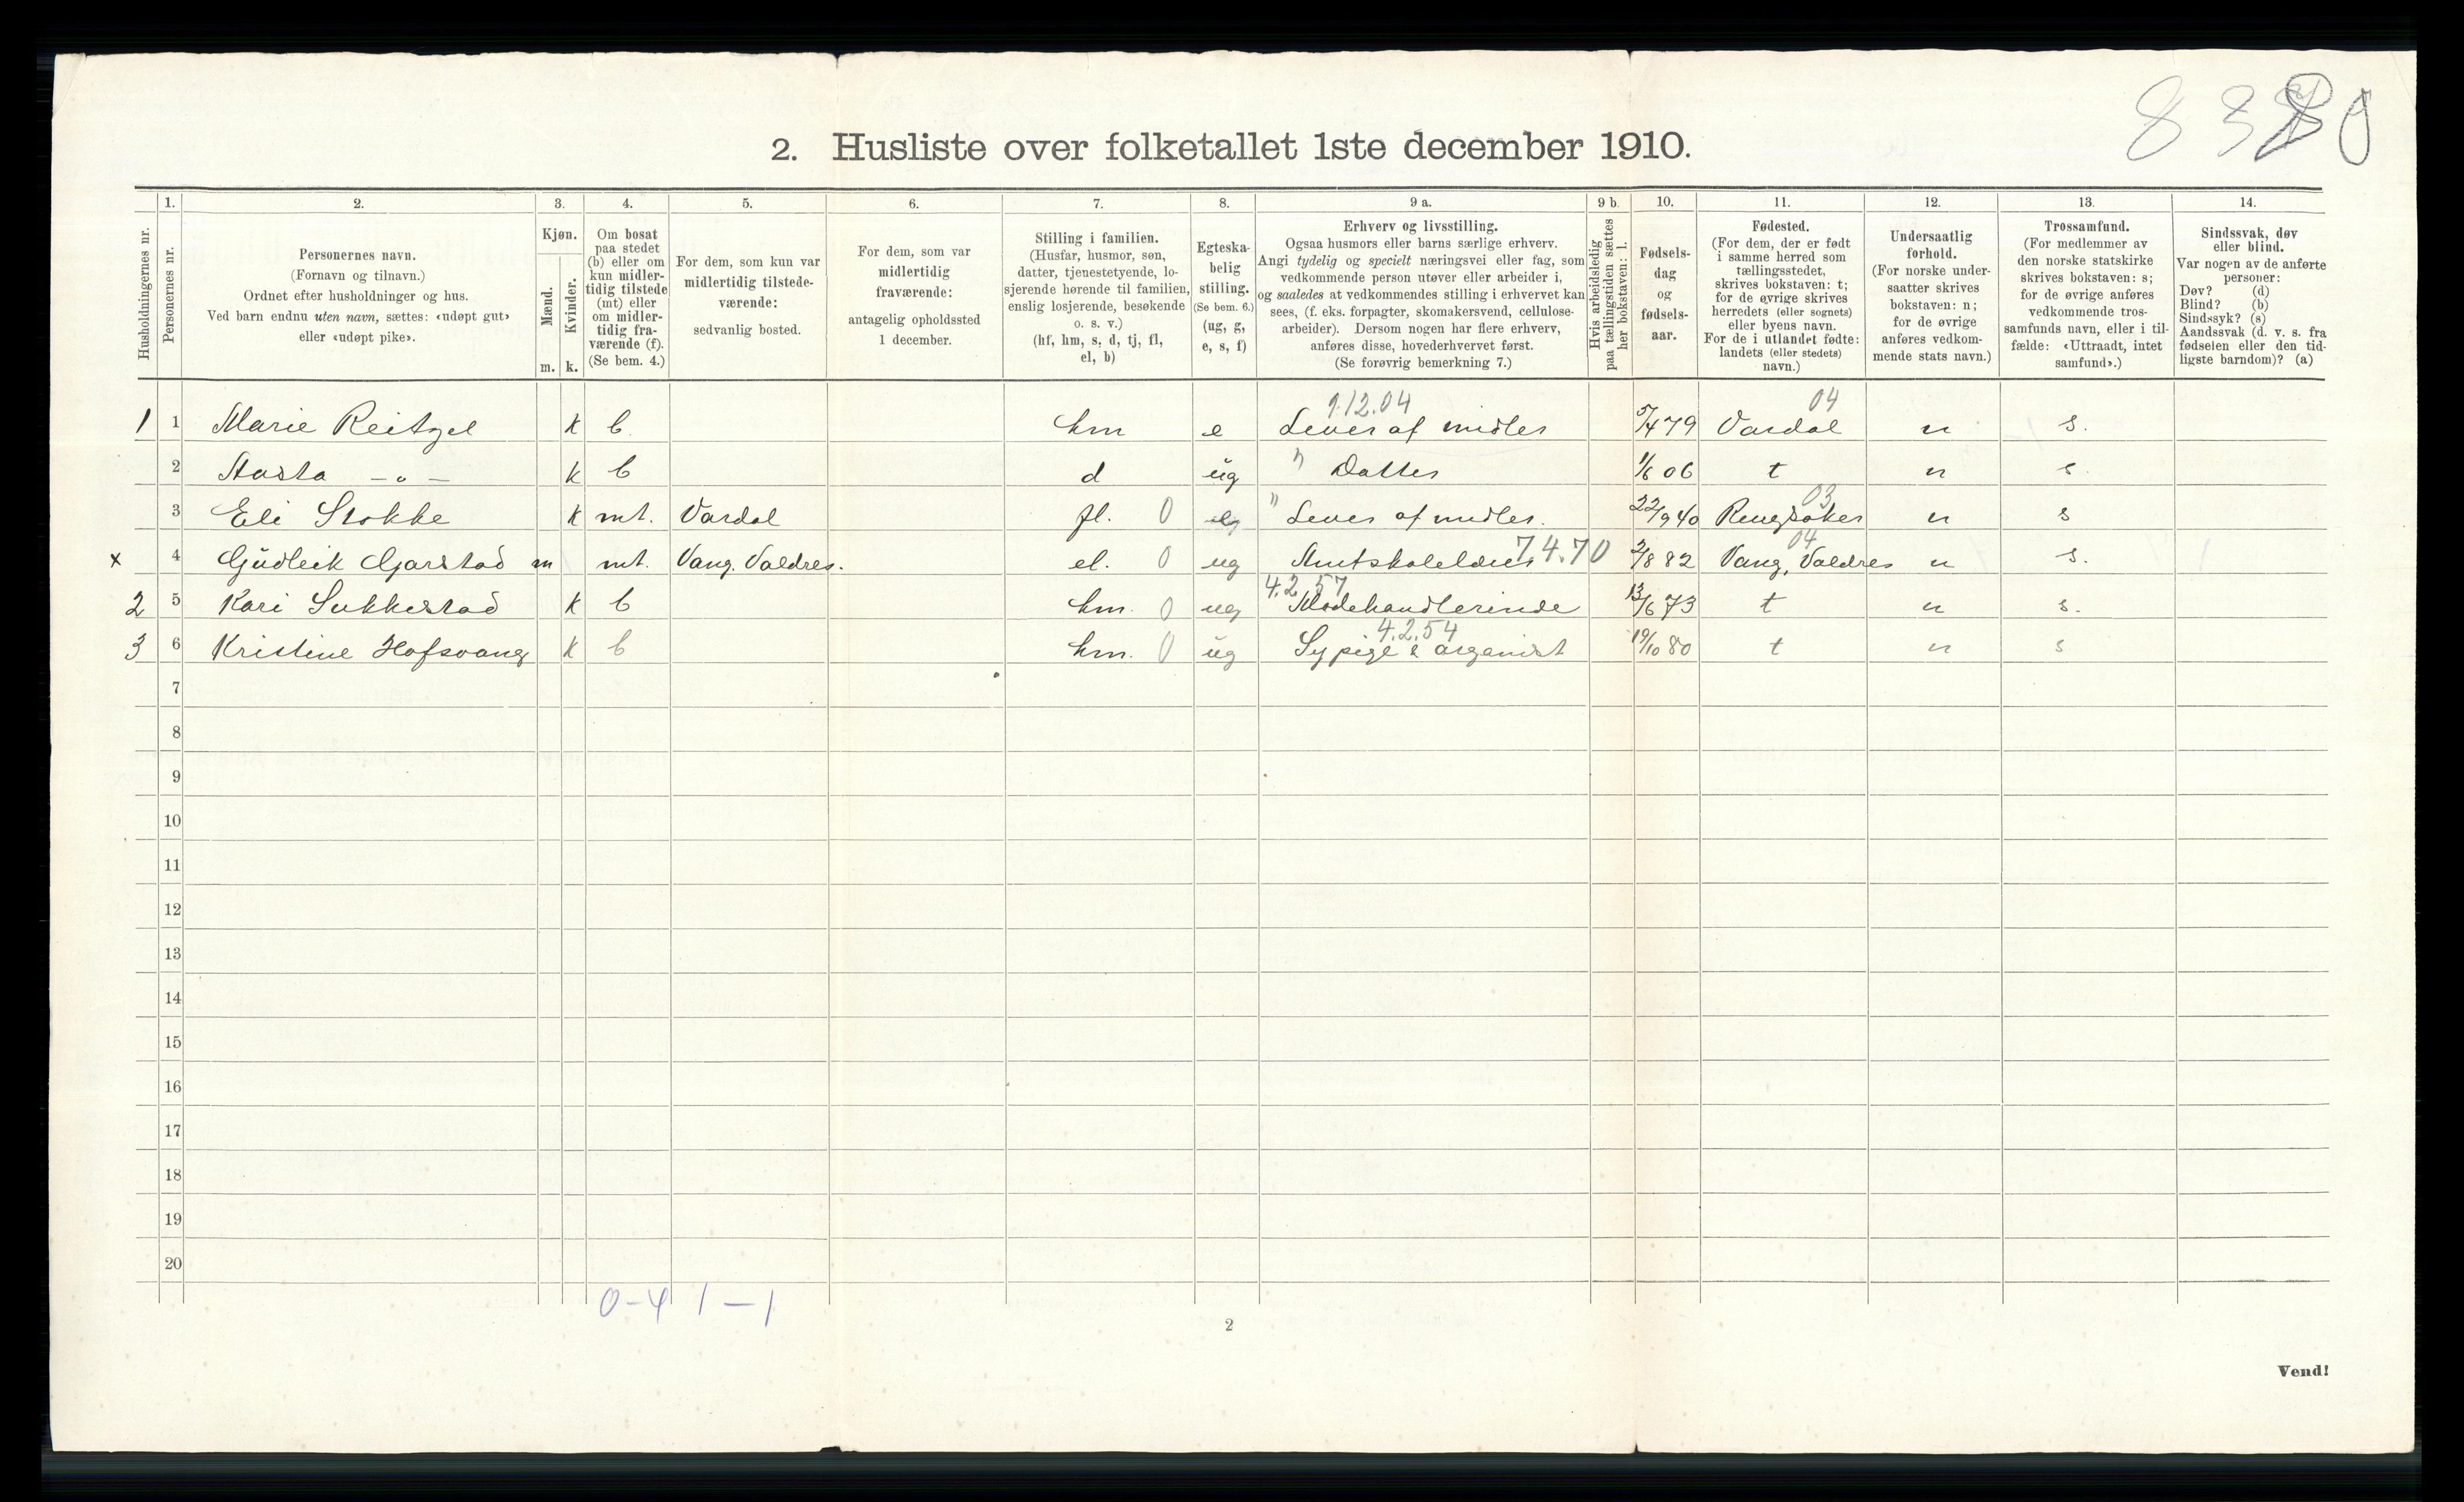 2. Husliste over folketallet 1ste december 1910.
Husholdningernes nr.
1. Personernes nr.
2. Personernes navn.
(Fornavn og tilnavn.)
Ordnet efter husholdninger og hus.
Ved barn endnu uten navn, sættes: «udøpt gut»
eller «udøpt pike».
3. Kjøn.
Mænd. m.
Kvinder. k.
4. Om bosat
paa stedet
(b) eller om
kun midler-
tidig tilstede
(mt) eller
om midler-
tidig fra-
værende (f).
(Se bem. 4.)
5. For dem, som kun var
midlertidig tilstede-
værende:
sedvanlig bosted.
6. For dem, som var
midlertidig
fraværende:
antagelig opholdssted
1 december.
7. Stilling i familien.
(Husfar, husmor, søn,
datter, tjenestetyende, lo-
sjerende hørende til familien,
enslig losjerende, besøkende
o. s. v.)
(hf, hm, s, d, tj, fl,
el, b)
8. Egteska-
belig
stilling.
(Se bem. 6.)
(ug, g,
e, s, f)
9 a. Erhverv og livsstilling.
Ogsaa husmors eller barns særlige erhverv.
Angi tydelig og specielt næringsvei eller fag, som
vedkommende person utøver eller arbeider i,
og saaledes at vedkommendes stilling i erhvervet kan
sees, (f. eks. forpagter, skomakersvend, cellulose-
arbeider). Dersom nogen har flere erhverv,
anføres disse, hovederhvervet først.
(Se forøvrig bemerkning 7.)
9 b. Hvis arbeidsledig
paa tællingstiden sættes
her bokstaven: l.
10. Fødsels-
dag
og
fødsels-
aar.
11. Fødested.
(For dem, der er født
i samme herred som
tællingsstedet,
skrives bokstaven: t;
for de øvrige skrives
herredets (eller sognets)
eller byens navn.
For de i utlandet fødte:
landets (eller stedets)
navn.)
12. Undersaatlig
forhold.
(For norske under-
saatter skrives
bokstaven: n;
for de øvrige
anføres vedkom-
mende stats navn.)
13. Trossamfund.
(For medlemmer av
den norske statskirke
skrives bokstaven: s;
for de øvrige anføres
vedkommende tros-
samfunds navn, eller i til-
fælde: «Uttraadt, intet
samfund».)
14. Sindssvak, døv
eller blind.
Var nogen av de anførte
personer:
Døv? (d)
Blind? (b)
Sindssyk? (s)
Aandssvak (d. v. s. fra
fødselen eller den tid-
ligste barndom)? (a)
9.12.04 04
1 1 Marie Reitzel k b. hm e Lever af midler 5/4 79 Vardal n s.
2 — " — k b d ug " Datter 1/6 06 t n s.
03
3 Eli Stokke k mt. Vardal fl. 0 " Lever af midler. 22/9 40 Ringsaker n s
04
x 4 Gudleik Gjarstad m mt. Vang. Valdres. el. 0 ug 7.4.70 2/8 82 Vang, Valdres n s.
4.2.57
2 5 Kari Sukkestad k b hm. 0 ug Modehandlerinde 13/6 73 t n s.
4.2.54
3 6 Kristine Hofsvang k b hm. 0 ug Sypige & organist 19/10 80 t n s
7
8
9
10
11
12
13
14
15
16
17
18
19
20
0–4 1–1
2
Vend!